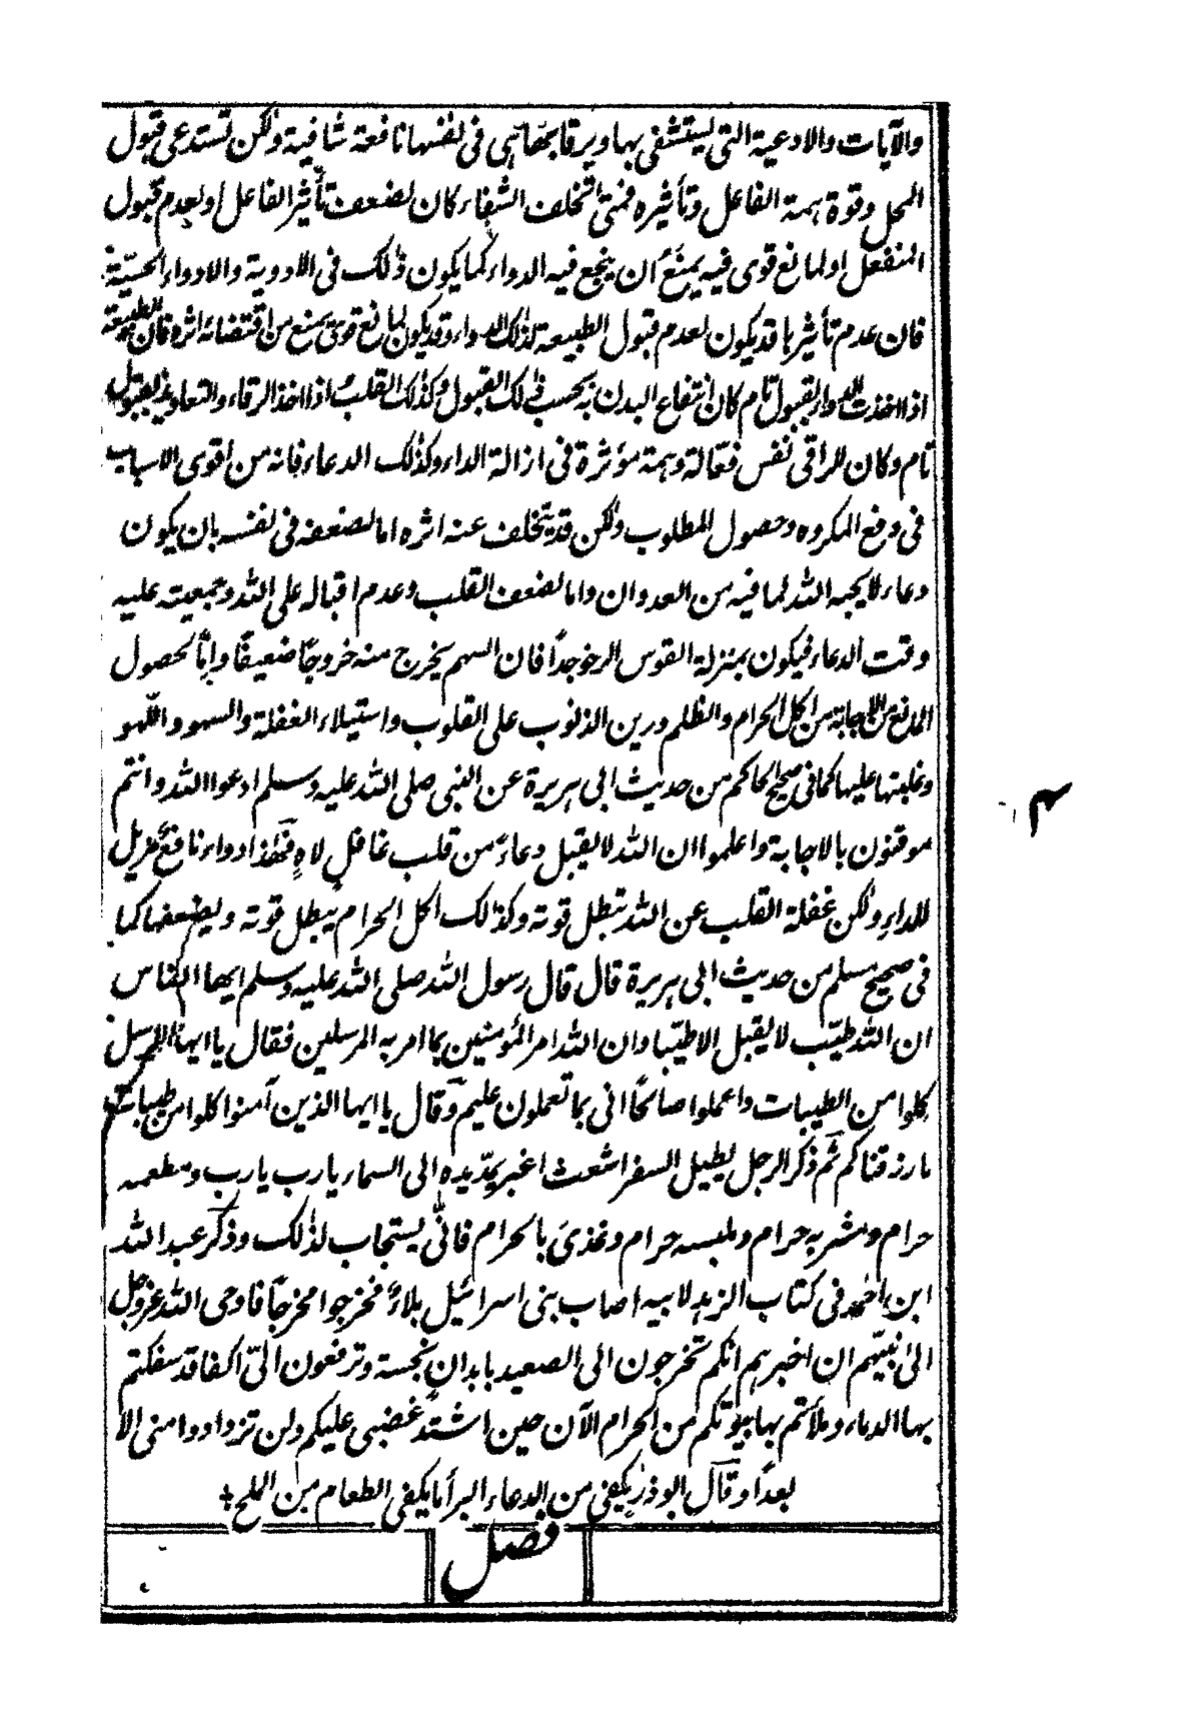 والآيات والادعية التى يستشفى بها ويرقا بها هى فى نفسها نافعة شافية ولكن تستدعى قبول
المحل وقوة همة الفاعل وتأثيره فمتى تخلف الشفاء كان لضعف تأثير الفاعل او لعدم قبول
المنفعل او لمانع قوى فيه يمنع ان ينجع فيه الدواء كما يكون ذلك فى الادوية والادواء الحسّيّة
فان عدم تأثيرها قد يكون لعدم قبول الطبيعة لذلك الدواء وقد يكون لمانع قوىّ يمنع من اقتضائه اثره فان الطبيعة
اذا اخذت الدواء بقبول تام كان انتفاع البدن به بحسب ذلك القبول وكذلك القلب اذا اخذ الرقاء والتعاويذ بقبول
تام وكان للراقى نفس فعّالة وهمة مؤثرة فى ازالة الداء وكذلك الدعاء فانه من اقوى الاسباب
فى دفع المكروه وحصول المطلوب ولكن قد يتخلف عنه اثره اما لضعفه فى نفسه بان يكون
دعاء لا يحبه الله لما فيه من العدوان واما لضعف القلب وعدم اقباله على الله وجمعيته عليه
وقت الدعاء فيكون بمنزلة القوس الرخو جداً فان السهم يخرج منه خروجًا ضعيفًا وامّا لحصول
المانع من الاجابة من اكل الحرام والظلم ورين الذنوب على القلوب واستيلاء الغفلة والسهو واللهو
وغلبتها عليها كما فى صحيح الحاكم من حديث ابى هريرة عن النبى صلى الله عليه وسلم ادعوا الله وانتم
موقنون بالاجابة واعلموا ان الله لا يقبل دعاءً من قلب غافل لاهٍ فهٰذا دواء نافعٌ مزيل
للداء ولكن غفلة القلب عن الله تبطل قوته وكذلك اكل الحرام يبطل قوته ويضعفها كما
فى صحيح مسلم من حديث ابى هريرة قال قال رسول الله صلى الله عليه وسلم ايها الناس
ان الله طيّب لا يقبل الا طيّبا وان الله امر المؤمنين بما امر به المرسلين فقال يا ايها الرسل
كلوا من الطيبات واعملوا صالحًا انى بما تعملون عليم وقال يا ايها الذين آمنوا كلوا من طيبات
ما رزقناكم ثم ذكر الرجل يطيل السفر اشعث اغبر يمدّ يده الى السماء يارب يارب ومطعمه
حرام ومشربه حرام وملبسه حرام وغذى بالحرام فانّى يستجاب لذلك وذكر عبد الله
ابن احمد فى كتاب الزهد لابيه اصاب بنى اسرائيل بلاءٌ فخرجوا مخرجًا فاوحى الله عزوجل
الى نبيّهم ان اخبرهم انكم تخرجون الى الصعيد بابدان نجسة وترفعون الىّ اكفا قد سفكتم
بها الدماء وملأتم بها بيوتكم من الحرام الآن حين اشتدّ غضبى عليكم ولن تزدادوا منى الا
بعداً وقال ابوذر يكفى من الدعاء البر أما يكفى الطعام من الملح
فصل